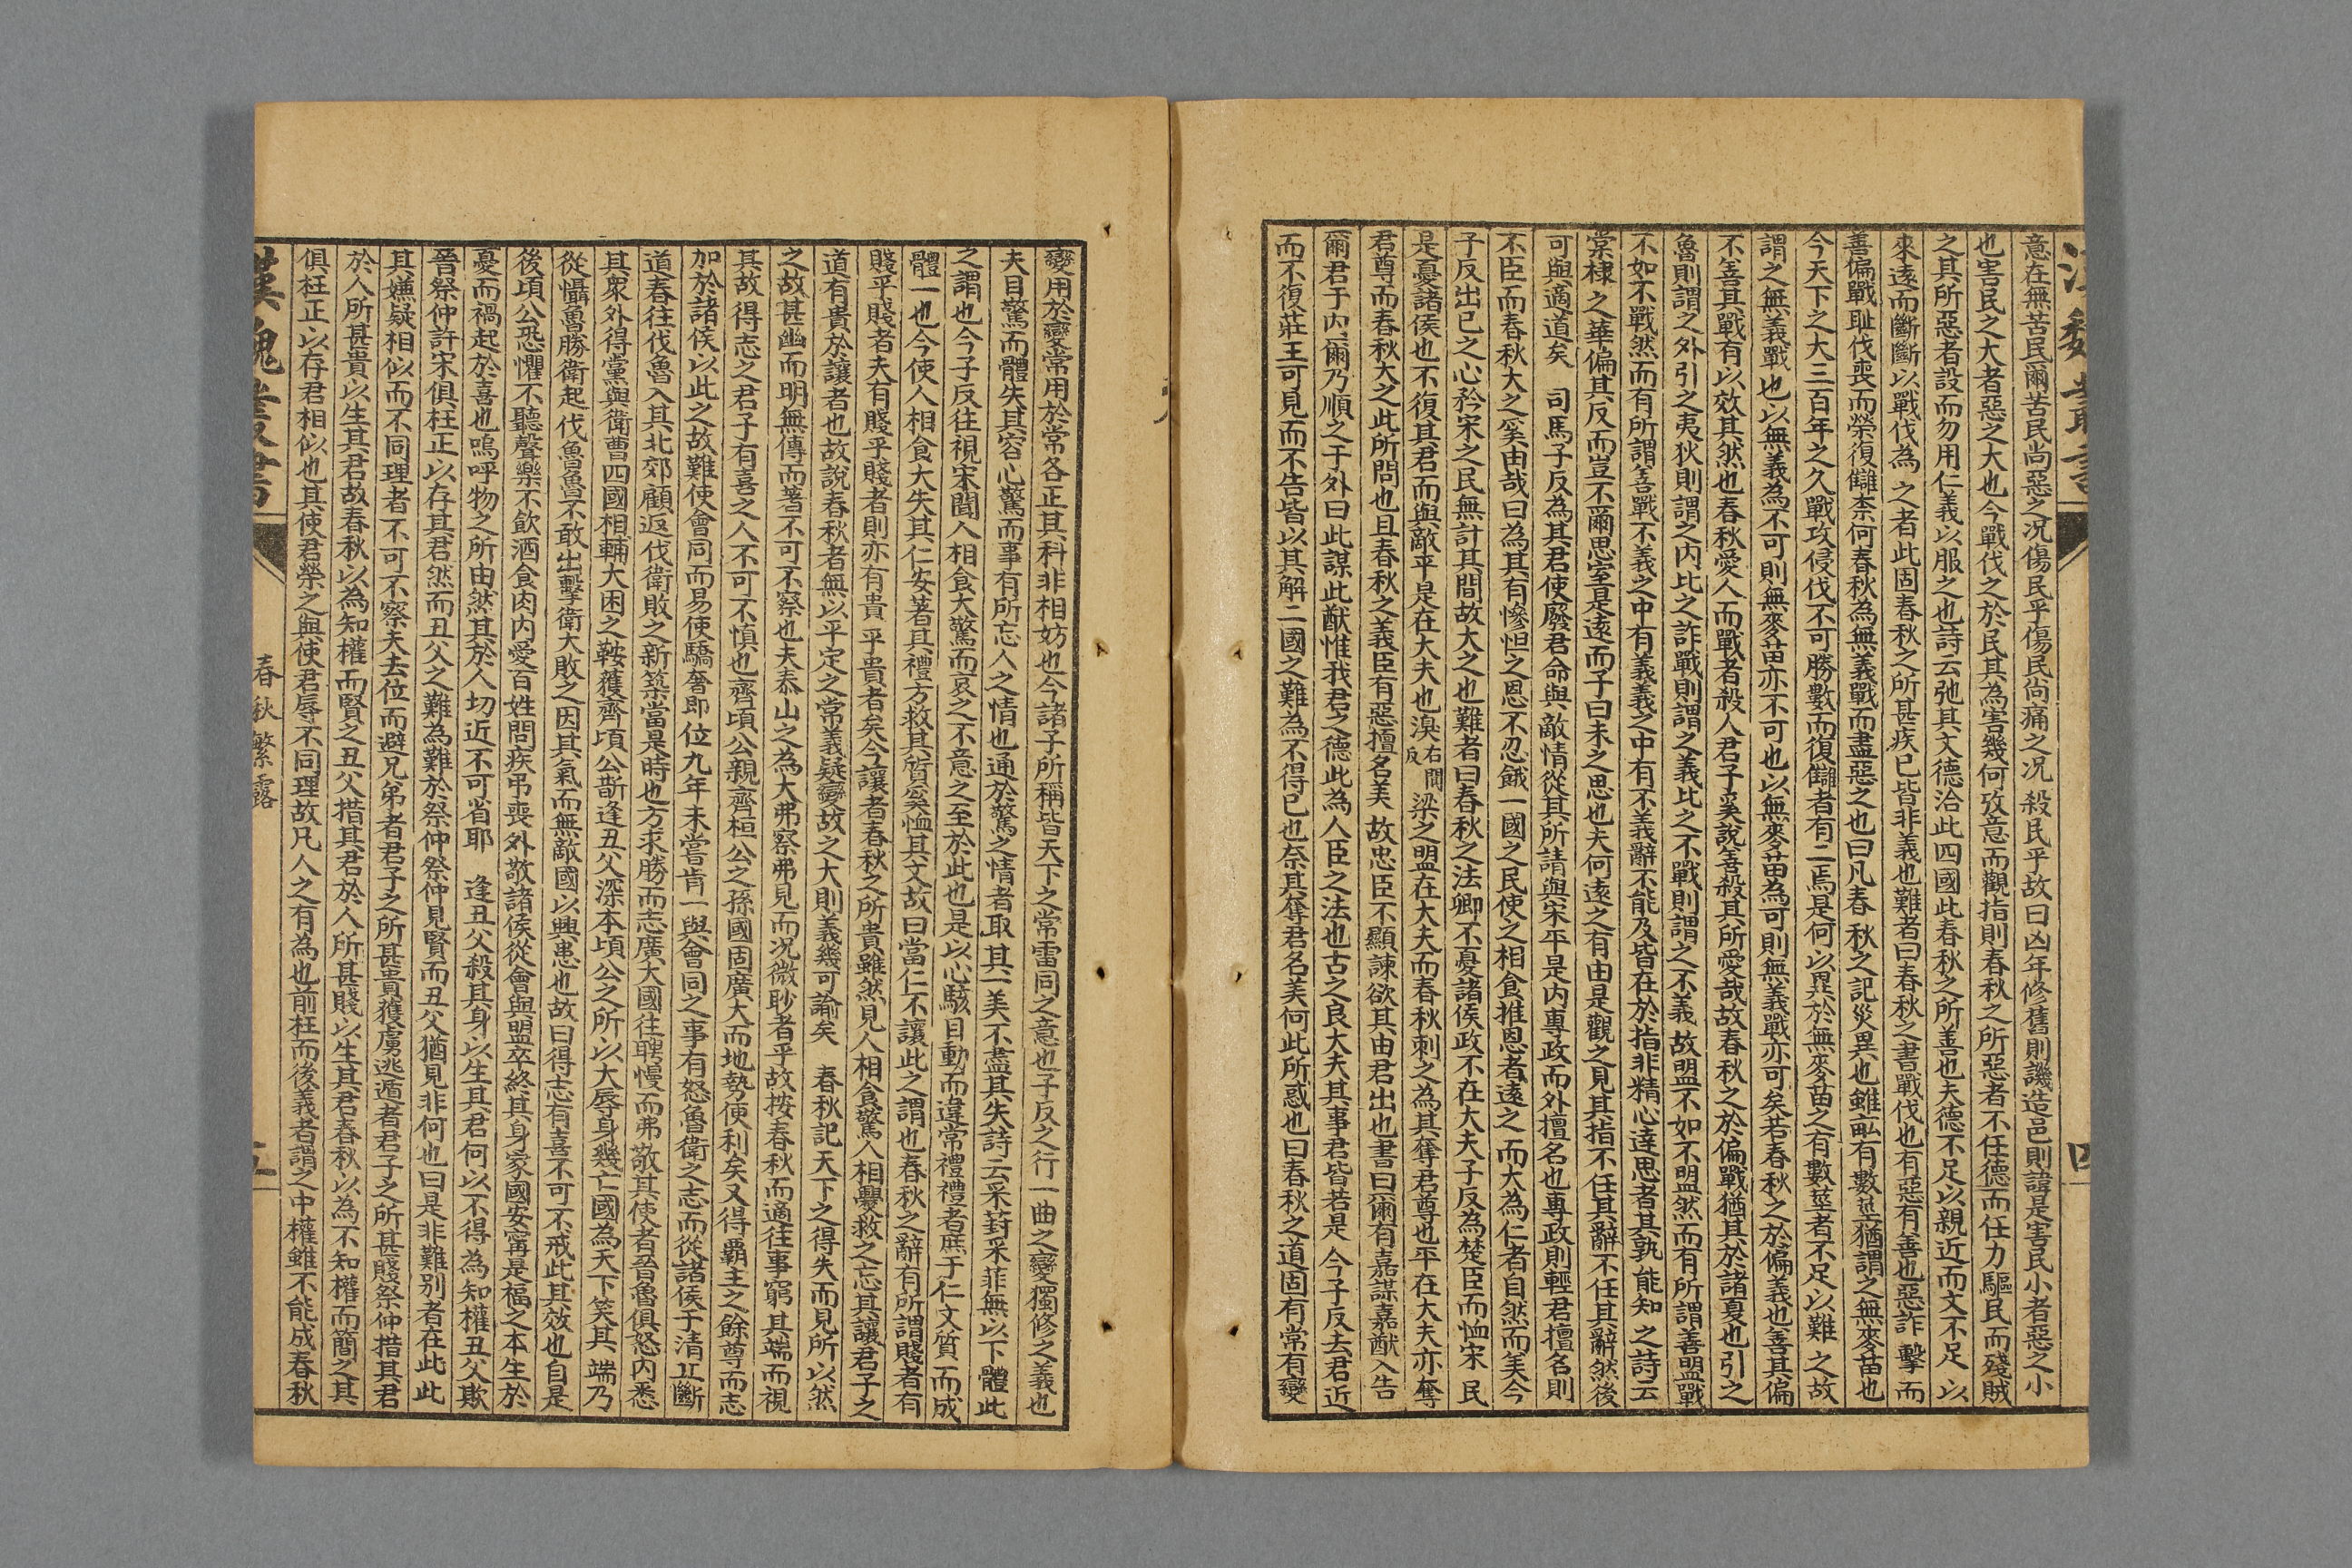 意在無苦民爾苦民尚惡之況傷民乎傷民尚痛之況殺民乎故曰凶年修舊則譏造邑則諱是害民小者惡之小
也害民之大者惡之大也今戰伐之於民其為害幾何攷意而觀指則春秋之所惡者不任德而任力驅民而殘賊
之其所惡者設而勿用仁義以服之也詩云弛其文德洽此四國此春秋之所善也夫德不足以親近而文不足以
來遠而斷斷以戰伐為之者此固春秋之所甚疾已皆非義也難者曰春秋之書戰伐也有惡有善也惡詐擊而
善偏戰耻伐喪而榮復讎柰何春秋為無義戰而盡惡之也曰凡春秋之記災異也雖畒有數莖猶謂之無麥苗也
今天下之大三百年之久戰攻侵伐不可勝數而復讎者有二焉是何以異於無麥苗之有數莖者不足以難之故
謂之無義戰也以無義為不可則無麥苗亦不可也以無麥苗為可則無義戰亦可矣若春秋之於偏義也善其偏
不善其戰有以效其然也春秋愛人而戰者殺人君子奚說善殺其所愛哉故春秋之於偏戰猶其於諸夏也引之
魯則謂之外引之夷狄則謂之內比之詐戰則謂之義比之不戰則謂之不義故盟不如不盟然而有所謂善盟戰
不如不戰然而有所謂善戰不義之中有義義之中有不義辭不能及皆在於指非精心達思者其孰能知之詩云
棠棣之華偏其反而豈不爾思室是遠而子曰未之思也夫何遠之有由是觀之見其指不任其辭不任其辭然後
可與適道矣　司馬子反為其君使廢君命與敵情從其所請與宋平是內專政而外擅名也專政則輕君擅名則
不臣而春秋大之奚由哉曰為其有慘怛之恩不忍餓一國之民使之相食推恩者遠之而大為仁者自然而美今
子反出己之心矜宋之民無計其間故大之也難者曰春秋之法卿不憂諸侯政不在大夫子反為楚臣而恤宋民
是憂諸侯也不復其君而與敵平是在大夫也溴右闃反梁之盟在大夫而春秋刺之為其奪君尊也平在大夫亦奪
君尊而春秋大之此所問也且春秋之義臣有惡擅名美故忠臣不顯諫欲其由君出也書曰爾有嘉謀嘉猷入告
爾君于內爾乃順之于外曰此謀此猷惟我君之德此為人臣之法也古之良大夫其事君皆若是今子反去君近
而不復莊王可見而不告皆以其解二國之難為不得已也奈其奪君名美何此所惑也曰春秋之道固有常有變
四
變用於變常用於常各正其科非相妨也今諸子所稱皆天下之常雷同之意也子反之行一曲之變獨修之義也
夫目驚而體失其容心驚而事有所忘人之情也通於驚之情者取其一美不盡其失詩云采葑采菲無以下體此
之謂也今子反往視宋聞人相食大驚而哀之不意之至於此也是以心駭目動而違常禮禮者庶于仁文質而成
體一也今使人相食大失其仁安著其禮方救其質奚恤其文故曰當仁不讓此之謂也春秋之辭有所謂賤者有
賤乎賤者夫有賤乎賤者則亦有貴乎貴者矣今讓者春秋之所貴雖然見人相食驚人相爨救之忘其讓君子之
道有貴於讓者也故說春秋者無以平定之常義疑變故之大則義幾可諭矣　春秋記天下之得失而見所以然
之故甚幽而明無傳而著不可不察也夫泰山之為大弗察弗見而況微眇者乎故按春秋而適往事窮其端而視
其故得志之君子有喜之人不可不慎也齊頃公親齊桓公之孫國固廣大而地勢便利矣又得霸主之餘尊而志
加於諸侯以此之故難使會同而易使驕奢即位九年未嘗肯一與會同之事有怒魯衛之志而從諸侯于清丘斷
道春往伐魯入其北郊顧返伐衛敗之新築當是時也方求勝而志廣大國往聘慢而弗敬其使者晉魯俱怒內悉
其衆外得黨與衛曹四國相輔大困之鞍獲齊頃公斮逢丑父深本頃公之所以大辱身幾亡國為天下笑其端乃
從懾魯勝衛起伐魯魯不敢出擊衛大敗之因其氣而無敵國以興患也故曰得志有喜不可不戒此其效也自是
後頃公恐懼不聽聲樂不飲酒食肉內愛百姓問疾弔喪外敬諸侯從會與盟卒終其身家國安寧是福之本生於
憂而禍起於喜也嗚呼物之所由然其於人切近不可省耶　逢丑父殺其身以生其君何以不得為知權丑父欺
晉祭仲許宋俱枉正以存其君然而丑父之難為難於祭仲祭仲見賢而丑父猶見非何也曰是非難別者在此此
其嫌疑相似而不同理者不可不察夫去位而避兄弟者君子之所甚貴獲虜逃遁者君子之所甚賤祭仲措其君
於人所甚貴以生其君故春秋以為知權而賢之丑父措其君於人所甚賤以生其君春秋以為不知權而簡之其
俱枉正以存君相似也其使君榮之與使君辱不同理故凡人之有為也前枉而後義者謂之中權雖不能成春秋
漢魏叢書　春秋繁露　五